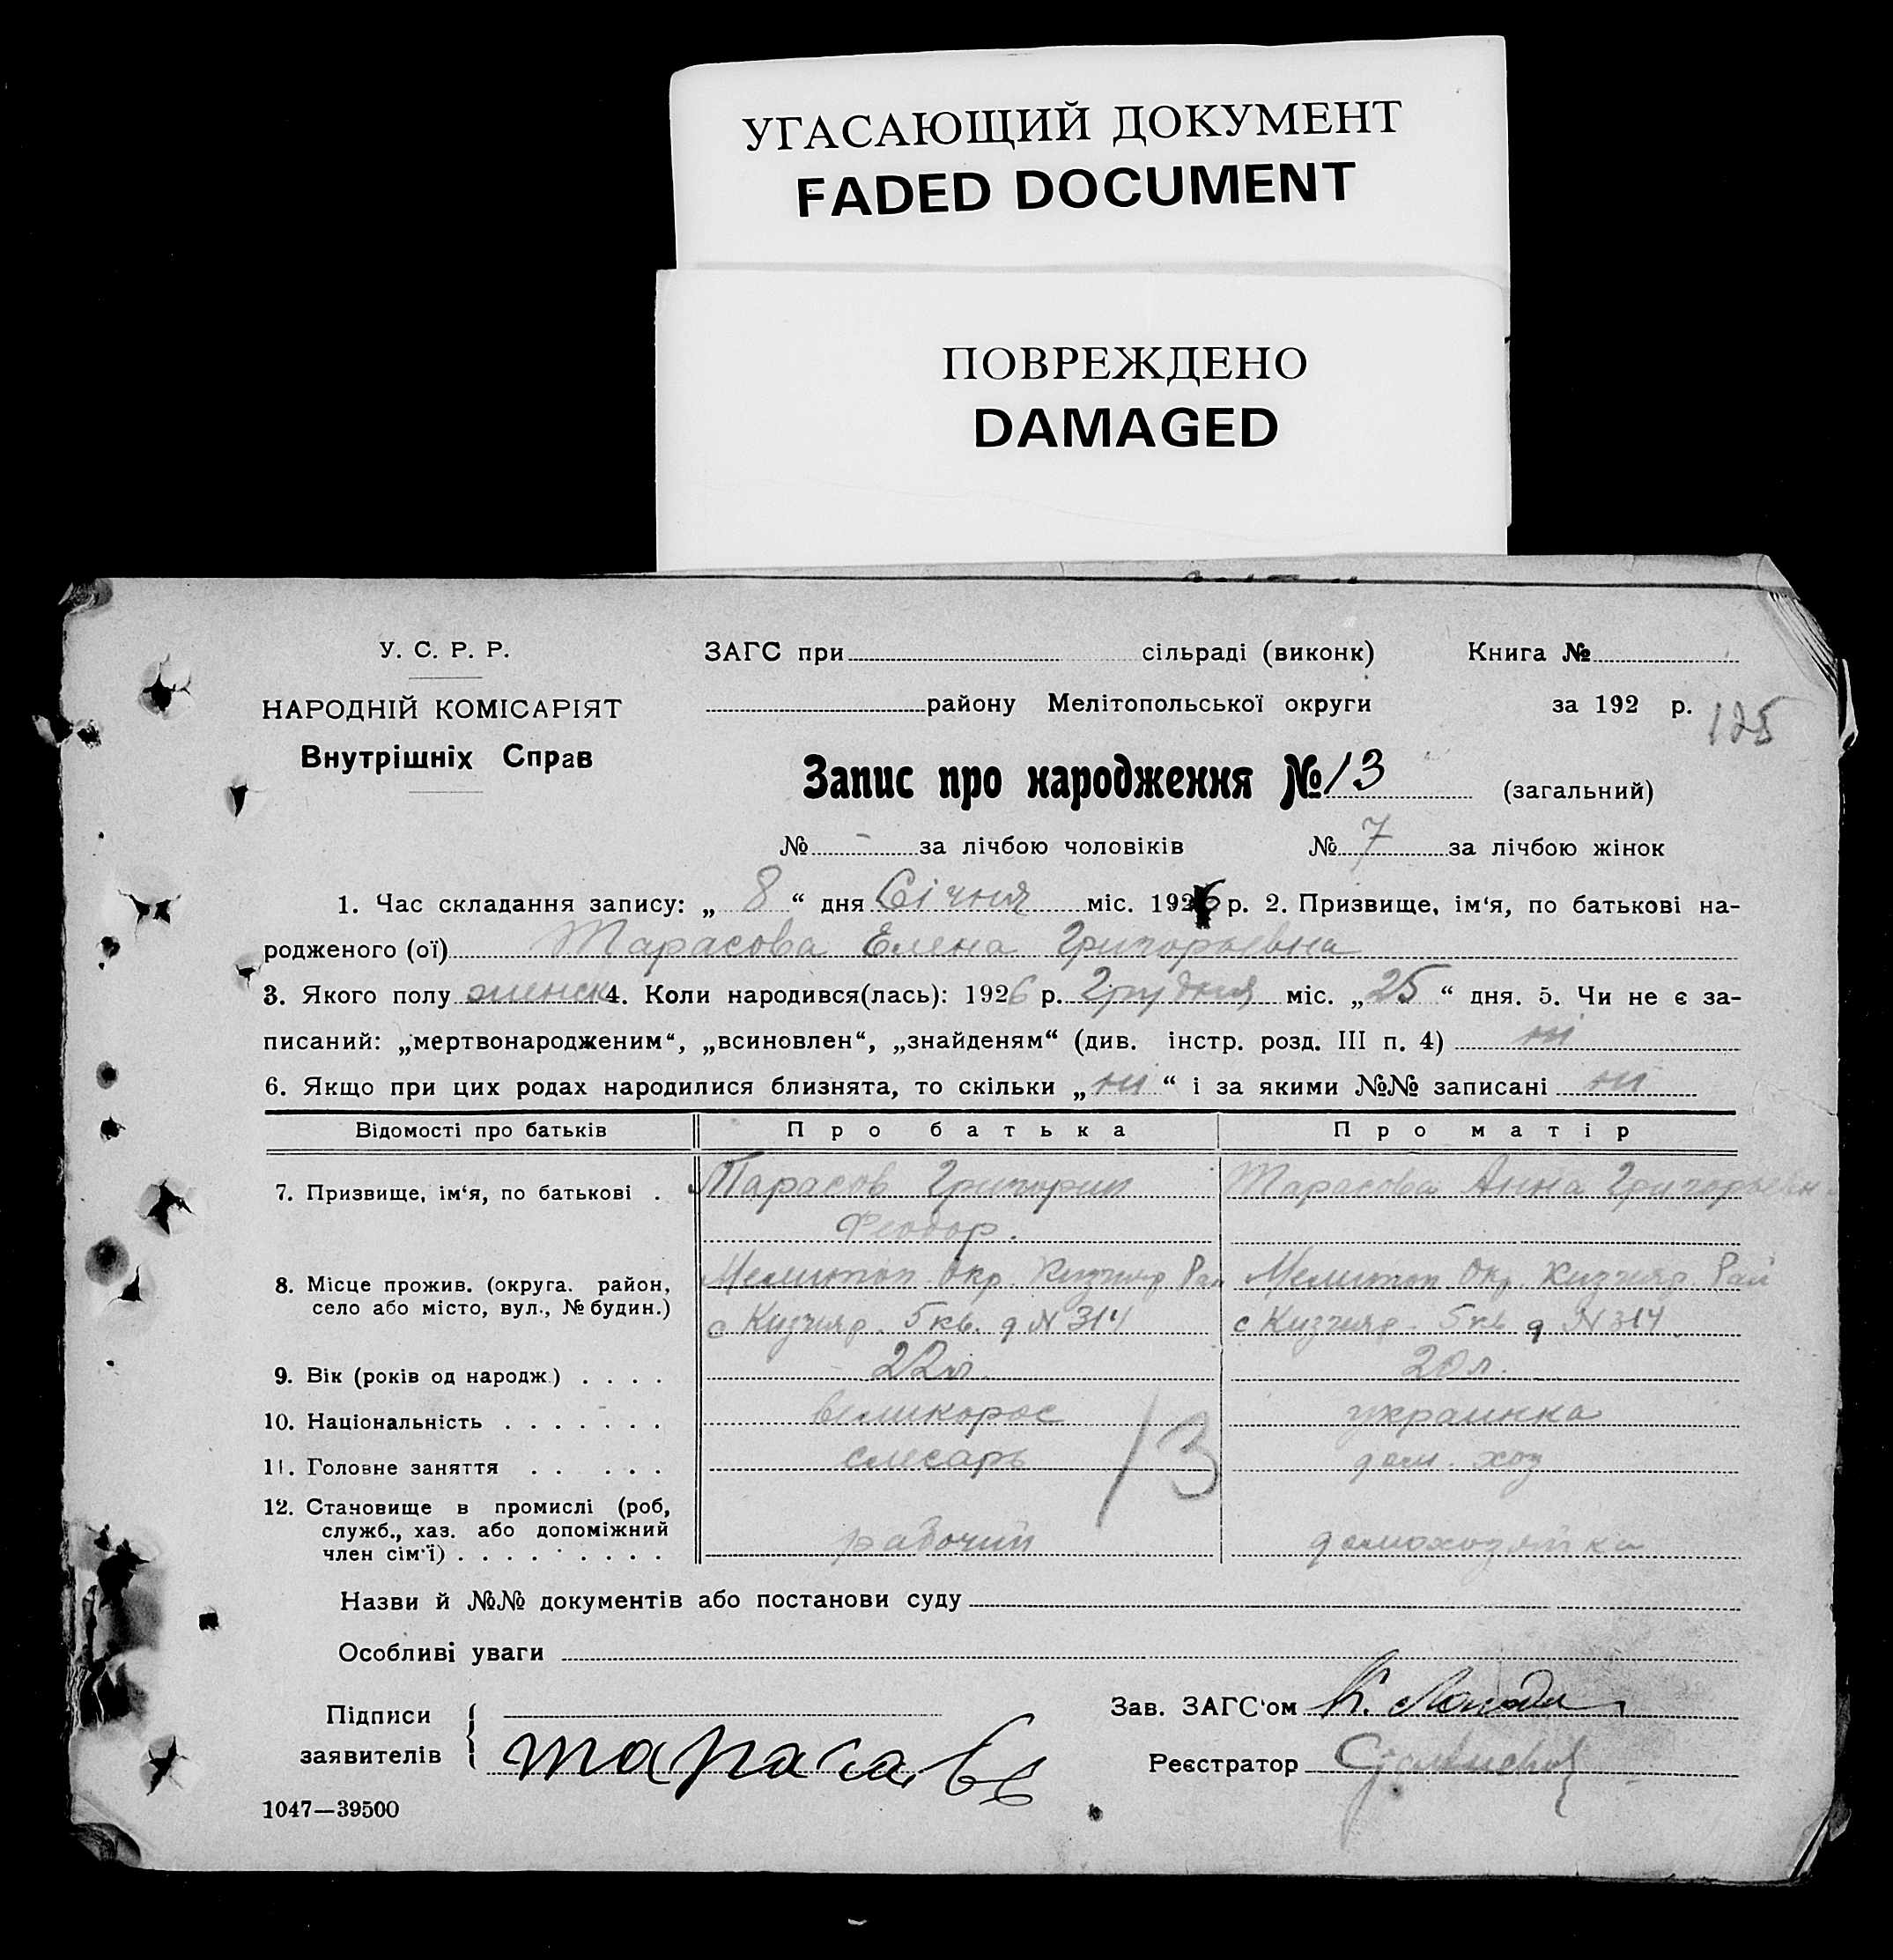 УГАСАЮЩИЙ ДОКУМЕНТ
FADED DOCUMENT
ПОВРЕЖДЕНО
DAMAGED
У. С. Р. Р.
НАРОДНІЙ КОМІСАРІЯТ
Внутрішніх Справ
ЗАГС при сільраді (виконк) Книга №
району Мелітопольської округи за 192 р.
125
Запис про народження № 13 (загальний)
№ - за лічбою чоловіків № 7 за лічбою жінок
1. Час складання запису: „ 8 “ дня Січня міс. 1926 р. 2. Призвище, ім‘я, по батькові на-
родженого (ої) Тарасова Елена Григорьевна
3. Якого полу женск 4. Коли народився(лась): 1926 р. Грудня міс. „ 25 “ дня. 5. Чи не є за-
писаний: „мертвонародженим“, „всиновлен“, „знайденям“ (див. інстр. розд. III п. 4) ні
6. Якщо при цих родах народилися близнята, то скільки „ ні “ і за якими №№ записані ні
Відомості про батьків Про батька Про матір
7. Призвище, ім‘я, по батькові . Тарасов Григорий Тарасова Анна Григорьевн
Феодор.
8. Місце прожив. (округа. район, Мелитоп Окр. Кизияр Рай Мелитоп Окр. Кизияр. Рай
село або місто, вул., № будин.) с Кизияр. 5 кв. д N 314 с Кизияр. 5 кв д N 314
9. Вік (років од народж.) . . . . 22 л. 20 л.
10. Національність . . . . . . . великорос украинка
11. Головне заняття . . . . . слесарь дом. хоз
13
12. Становище в промислі (роб,
служб., хаз. або допоміжний
член сім‘ї) . . . . . . . . . рабочий домохозяйка
Назви й №№ документів або постанови суду
Особливі уваги
Підписи
заявителів Тарасов
Зав. ЗАГС‘ом
Реєстратор
1047—39500